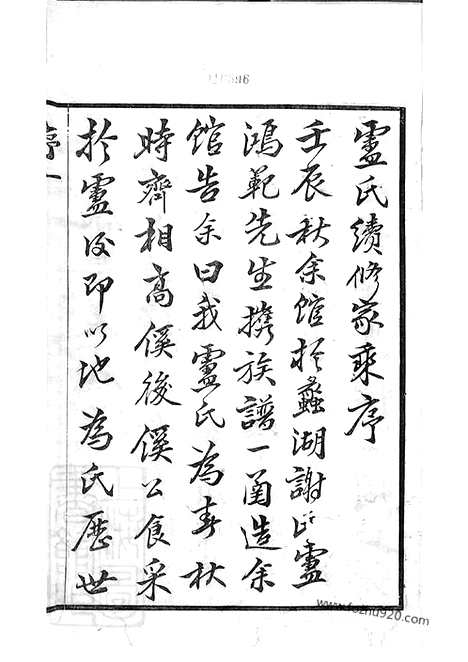 盧氏續修家乘序
壬辰秋余館於蠡湖謝氏盧
鴻範先生携族譜一函造余
館告余曰我盧氏為春秋
時齊相高傒後傒公食采
於盧後即以地為氏歷世
序一
www.fozhu920.com